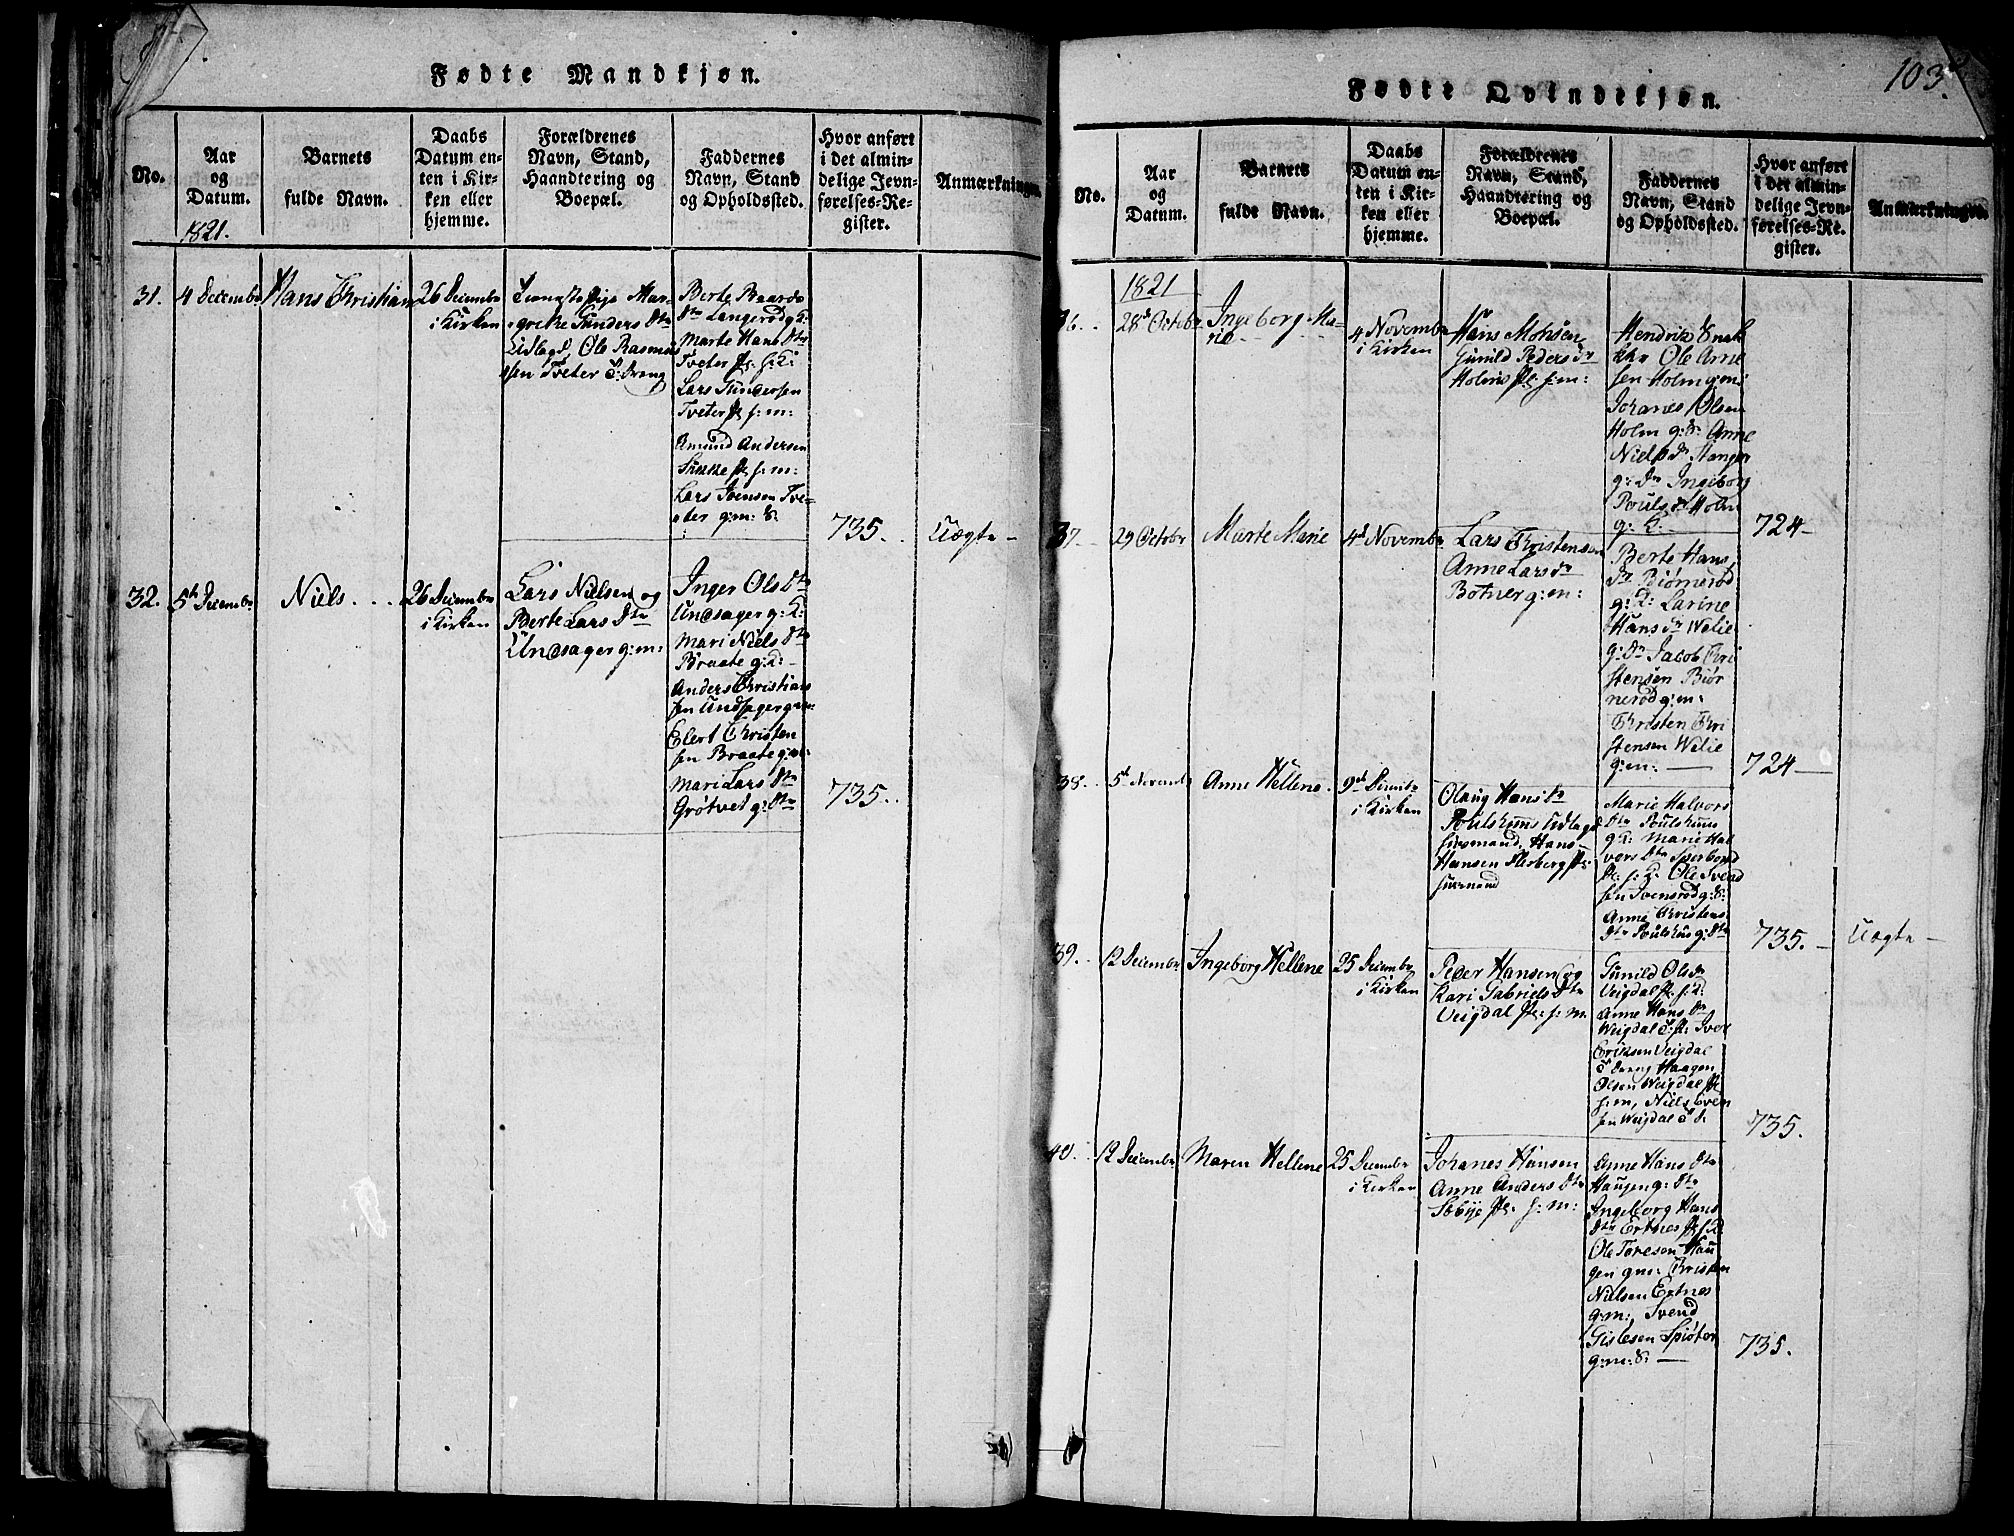 Fødte Mandkjøn.
No.
Aar
og
Datum.
1821.
Barnets
fulde Navn.
Daabs
Datum en-
ten i Kir-
ken eller
hjemme.
Forældrenes
Navn, Stand,
Haandtering og
Boepæl.
Faddernes
Navn, Stand
og Opholdssted.
Hvor anført
i det almin-
delige Jevn-
førelses-Re-
gister.
Anmærkninger.
31.
4 Decembr
Hans Christian
26 Decembr
i Kirken
Pige Mar-
grethe Gunders Dtr
Lidlagd, Ole Rasmus
sen Tveter T: Dreng
Berte Baards
Dtr Langerød g: K:
Marte Hans Dtr
Tveter pl. h: K:
Lars Gundersen
Tveter pl h: m:
Amund Andersen
pl h: m:
Lars Ivensen Tve-
ter g: m: &.
735.
Uægte -
32.
5te Decembr
Niels. . . .
26 Decembr
i Kirken
Lars Nielsen og
Berte Lars Dtr
Undsager g: m:
Inger Ols Dtr
Undsager g: K:
Mari Niels Dtr
Braate g: K: -
Anders Christian
sen Undsager g: m:
Elert Christen
sen Braate g: m:
Mari Lars Dtr
Grøtvet g: Dtr
735..
Fødte Qvindekjøn.
103.
No.
Aar
og
Datum.
Barnets
fulde Navn.
Daabs
Datum en-
ten i Kir-
ken eller
hjemme.
Forældrenes
Navn, Stand,
Haandtering og
Boepæl.
Faddernes
Navn, Stand
og Opholdssted.
Hvor anført
i det almin-
delige Jevn-
førelses-Re-
gister.
Anmærkninger.
1821
36..
28d Octobr
Ingeborg Ma-
rie
4 Novembr
i Kirken
Hans Mohsen
Gunild Peders Dr
Holms pl: h: m:
Hendrik
Ole Arne
sen Holm g: m:
Johanes Olsen
Holm g: &: Anne
Niels Dr Stanger
g: Dr Ingeborg
Pouls Dr Holm
g: K: -
724-
37.
29 Octobr
Marte Marie
4d Novembr
Lars Christensen
Anne Lars Dr
Botner g: m:
Berte Hans
Dr Biørnerød
g: K: Larine
Hans Dr Welie
g: Dr Jacob Chri
stensen Biør
nerød g: m:
Christen Chri
stensen Welie
g: m: -
724-
38..
5d Novemb
Anne Hellene.
9d Decmbr
i Kirken
Olaug Hans Dr
Poulshuus Udlagd
huusmand, Hans
Hansen Flesberg pl:
huusmand
Marie Halvors
Dtr Poulshuus
g: K: Marie Hal
vors Dtr Sperbond
pl. h: K: Ole Svend
sen Svensrød g: &:
Anne Christens
Dtr Poulshus g: Dtr
735. -
Uægte -
39..
12 Decembr
Ingeborg Hellene
25 Decembr
i Kirken
Peder Hansen og
Kari Gabriels Dtr
Veigdal pl: h: m.
Gunild Ols Dr
Veigdal pl. h: K:
Anne Hans Dtr
Weigdal T: p: Iver
Eriksen Veigdal
T dreng Haagen
Olsen Weigdal pl
h: m, Niels Even
sen Weigdal T &.
735.
40.
12 Decembr
Maren Hellene
25 Decembr
i Kirken
Johanes Hansen
Anne Anders Dtr
Sebye pl. h: m:
Anne Hans Dtr
Haugen g: Dtr
Ingeborg Hans
Dtr Ertnes pl h: K
Ole Toresen Hau
gen gm: Christen
Nielsen Ertnes
g: m:, Svend
Gislesen Spiøter
g: m: &. -
735.